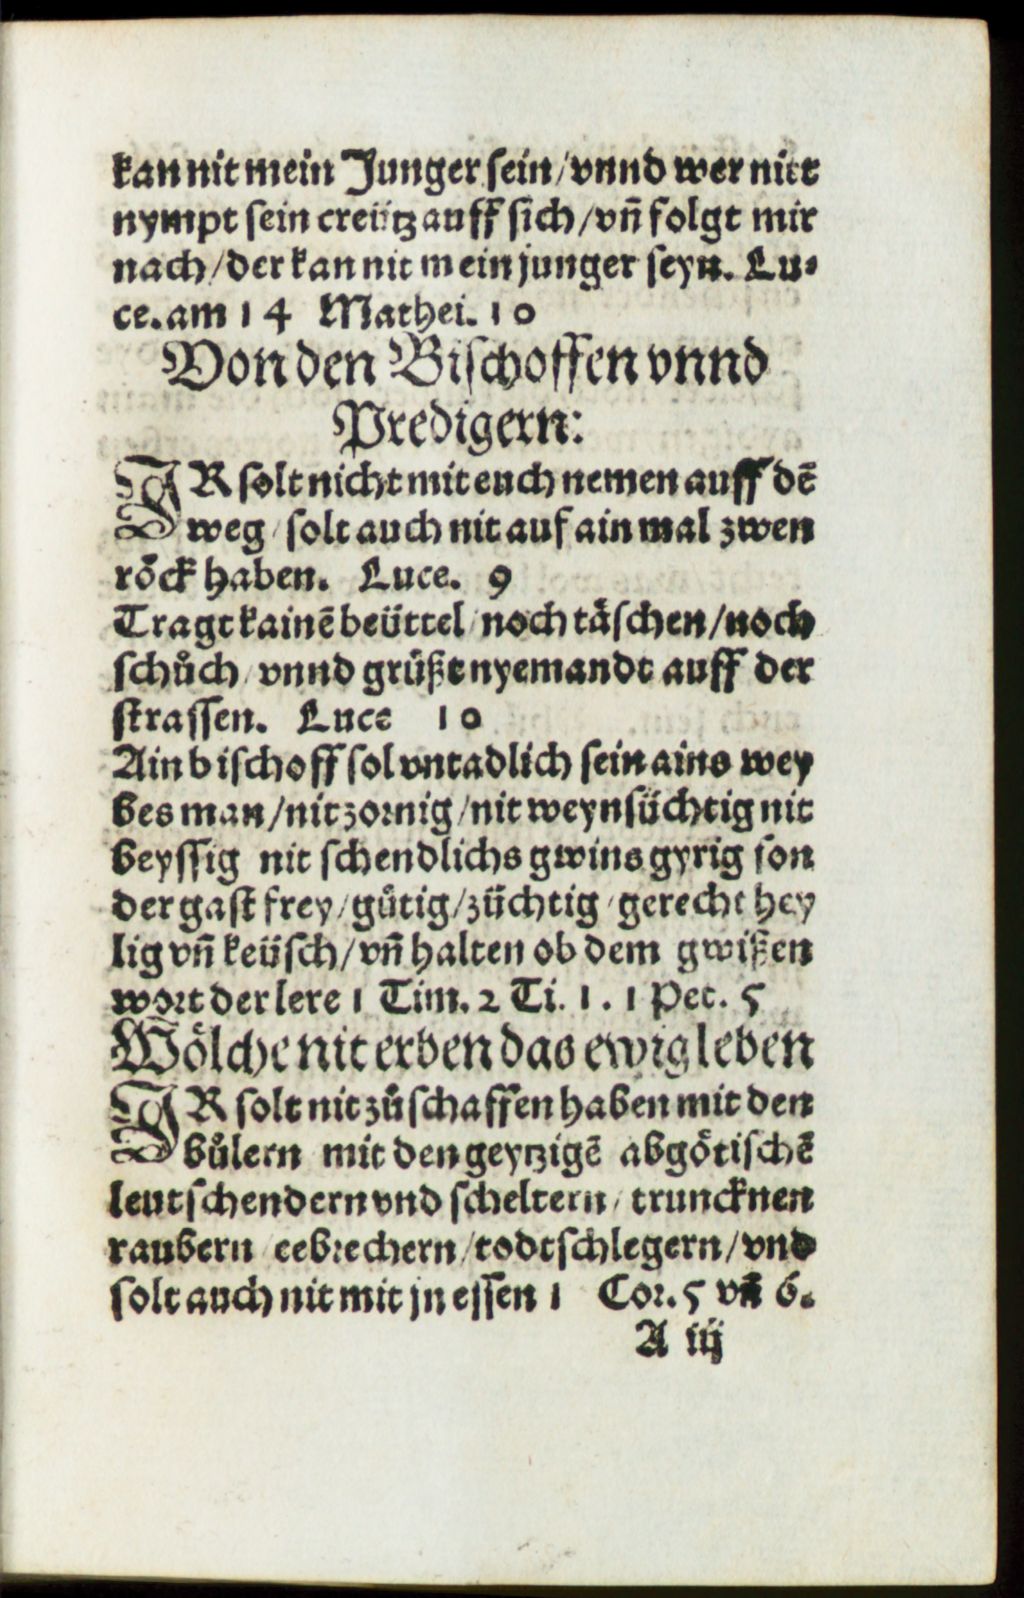 kan nit mein Junger sein / vnnd wer nitt
nympt sein creütz auff sich / vn̄ folgt mir
nach / der kan nit mein junger seyn. Lu⸗
ce. am 14 Mathei. 10
Von den Bischoffen vnnd
Predigern:
IR solt nicht mit euch nemen auff dē
weg / solt auch nit auf ain mal zwen
roͤck haben. Luce. 9
Tragt kainē beüttel / noch taͤschen / noch
schuͦch / vnnd grüßt nyemandt auff der
strassen. Luce 10
Ain bischoff sol vntadlich sein ains wey
bes man / nit zornig / nit weynsüchtig nit
beyssig nit schendlichs gwins gyrig son
der gast frey / gütig / züchtig / gerecht hey
lig vn̄ keüsch / vn̄ halten ob dem gwißen
wort der lere 1 Tim. 2 Ti. 1. 1 Pet. 5
Woͤlche nit erben das ewig leben
IR solt nit zuͦ schaffen haben mit den
buͦlern mit den geytzigē abgoͤtischē
leutschendern vnd scheltern / truncknen
raubern / eebrechern / todtschlegern / vnd
solt auch nit mit jn essen 1 Cor. 5 vn̄ 6.
A iij